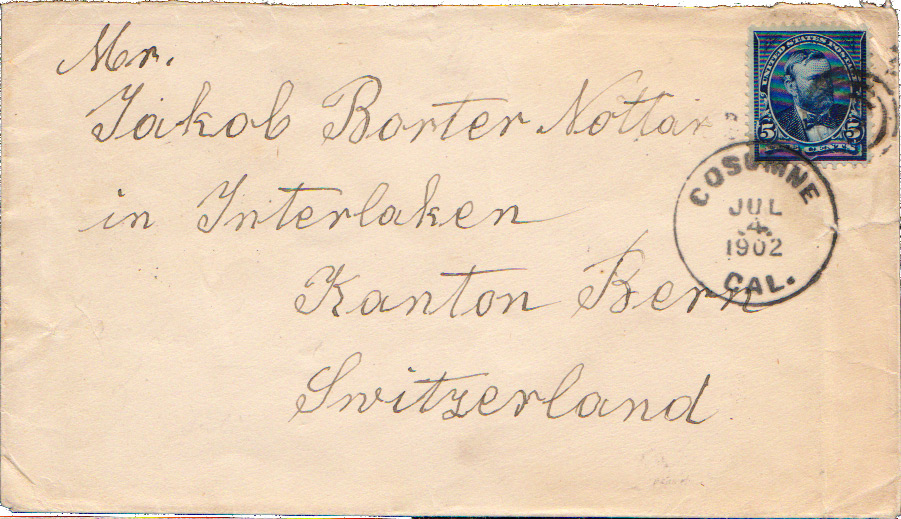 Mr.
Jakob Borter Nottar
in Interlaken
Kanton Bern
Switzerland
UNITED STATES POSTAGE
5 5
COSUMNE
JUL
4
1902
CAL.